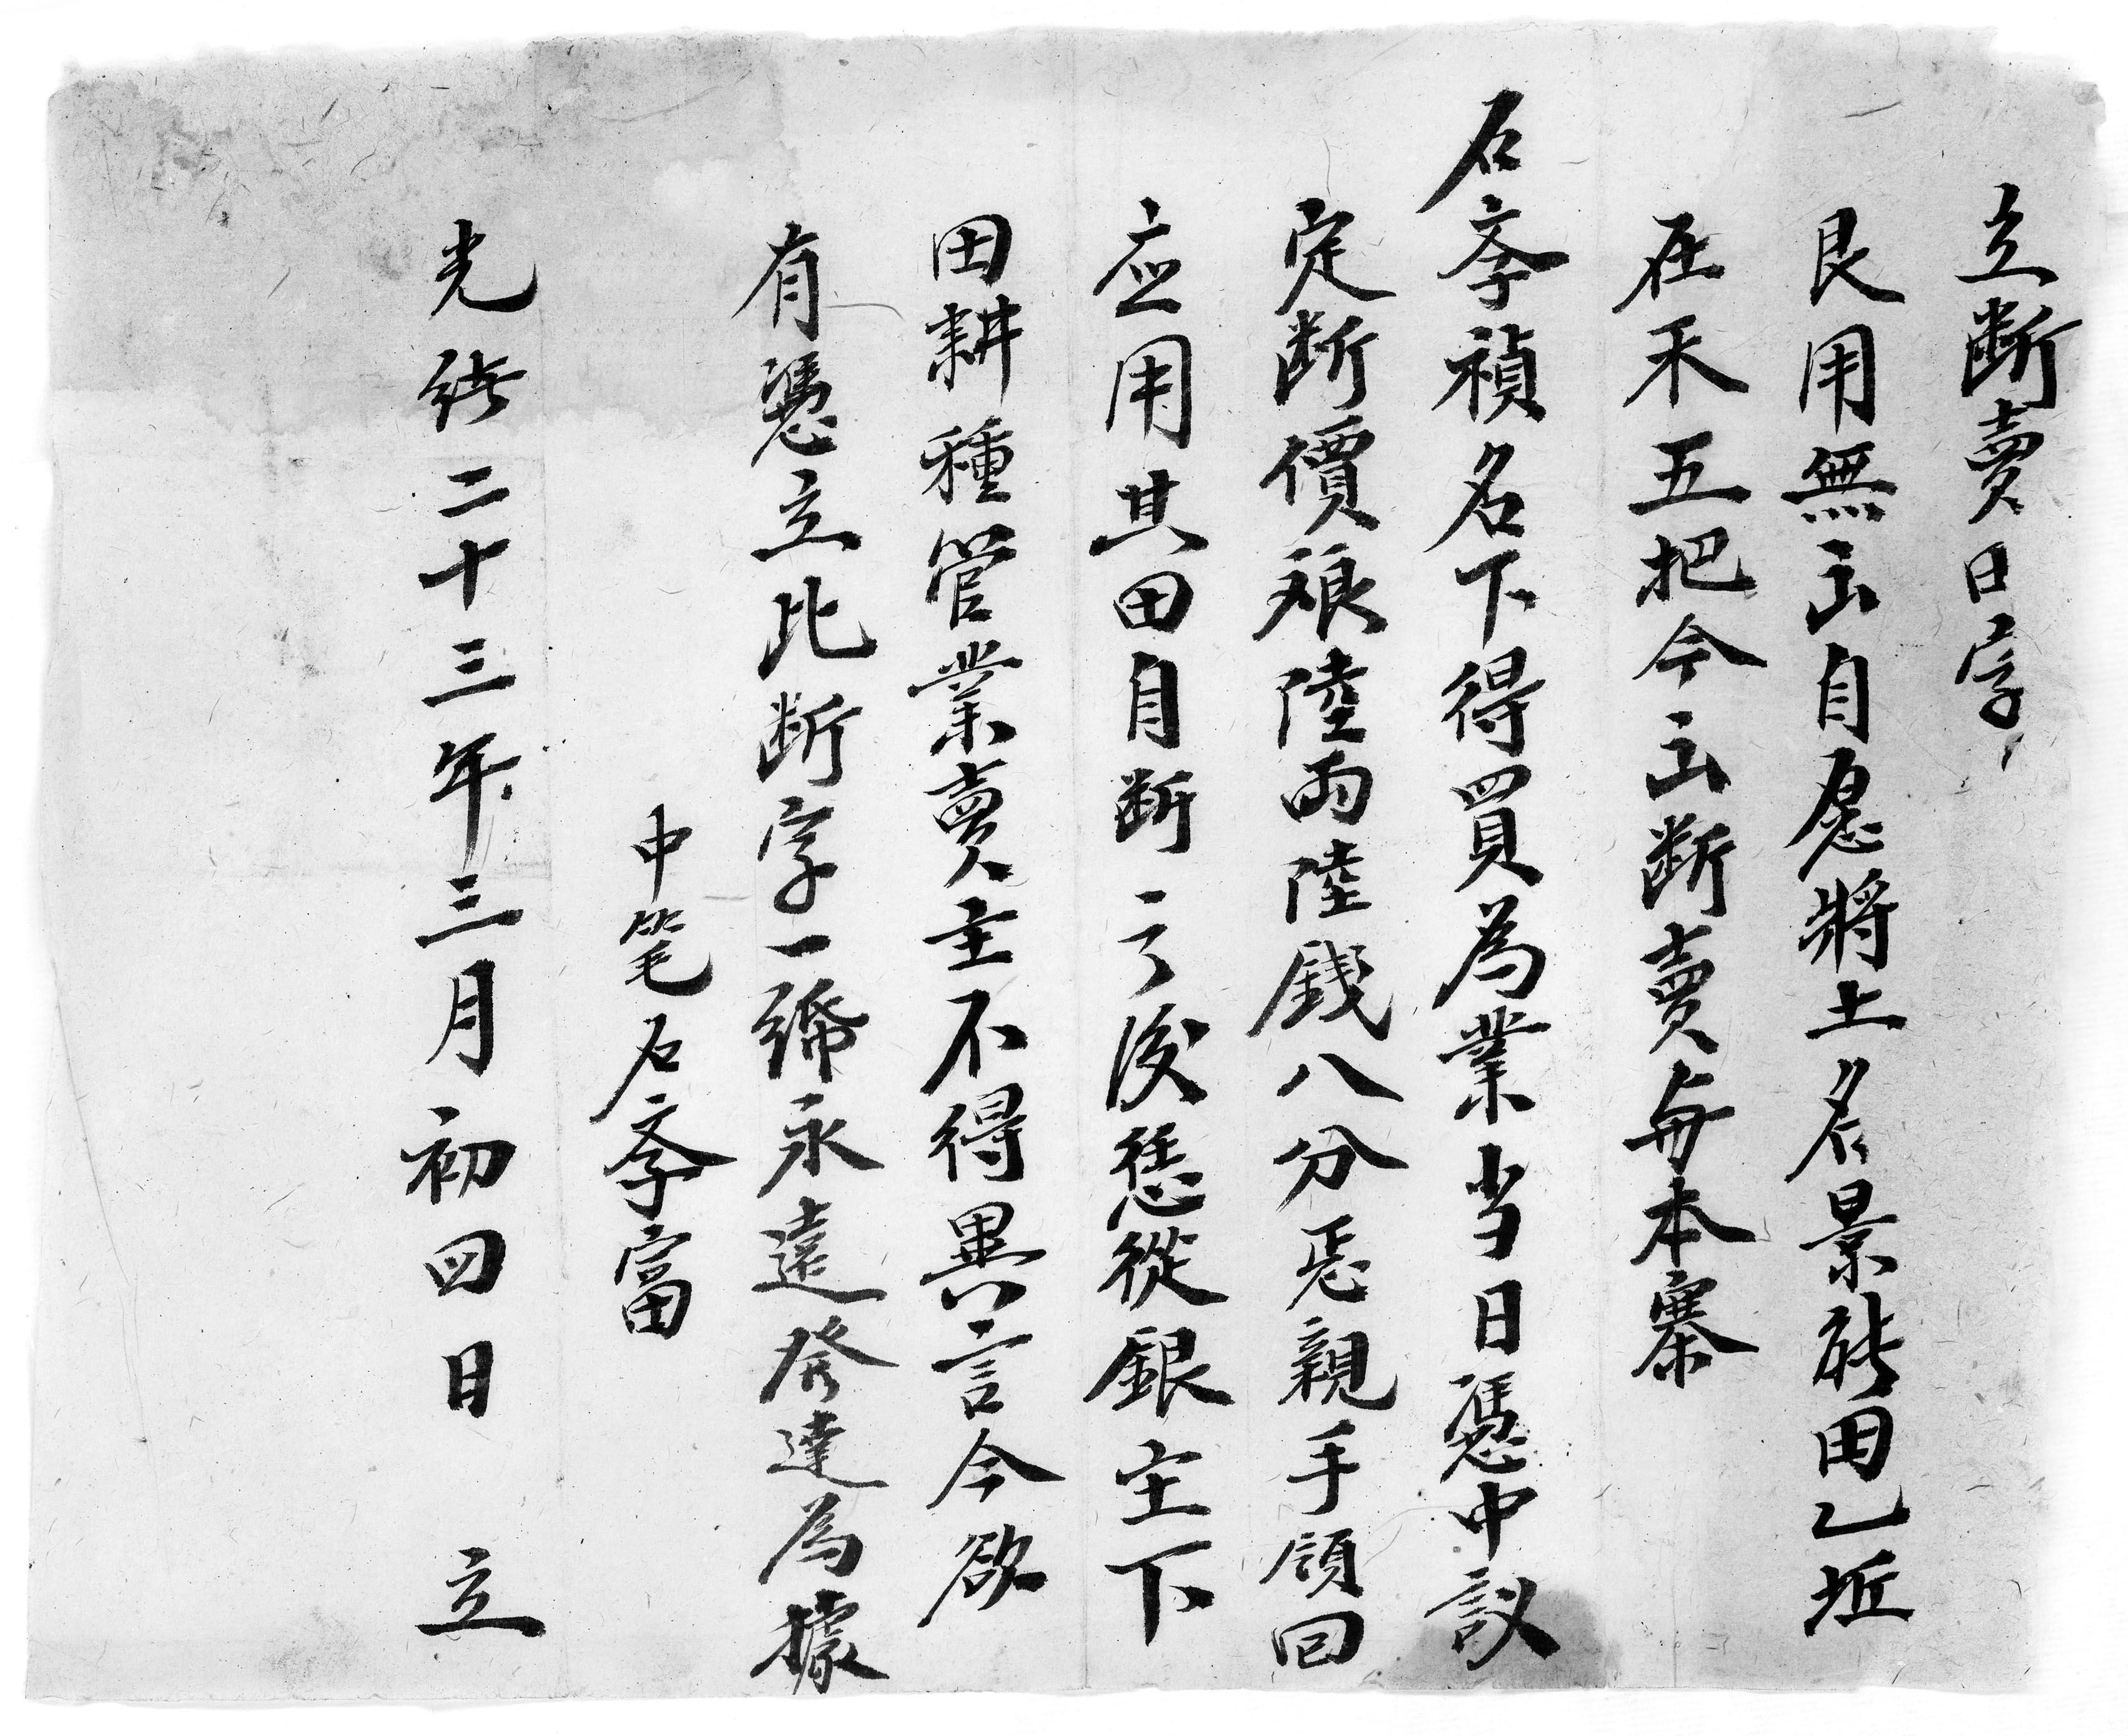 立断賣田字
艮用無出自愿將土名景能田乙坵
在禾五把今出断賣與本寨
石孝禎名下得買為業当日憑中議
定断價銀陸両陸錢八分憑親手領回
应用其田自断之後恁從銀主下
田耕種管業賣主不得異言今欲
有憑立此断字一紙永遠發達為據
中笔石孝富
光緒二十三年三月初四日 立